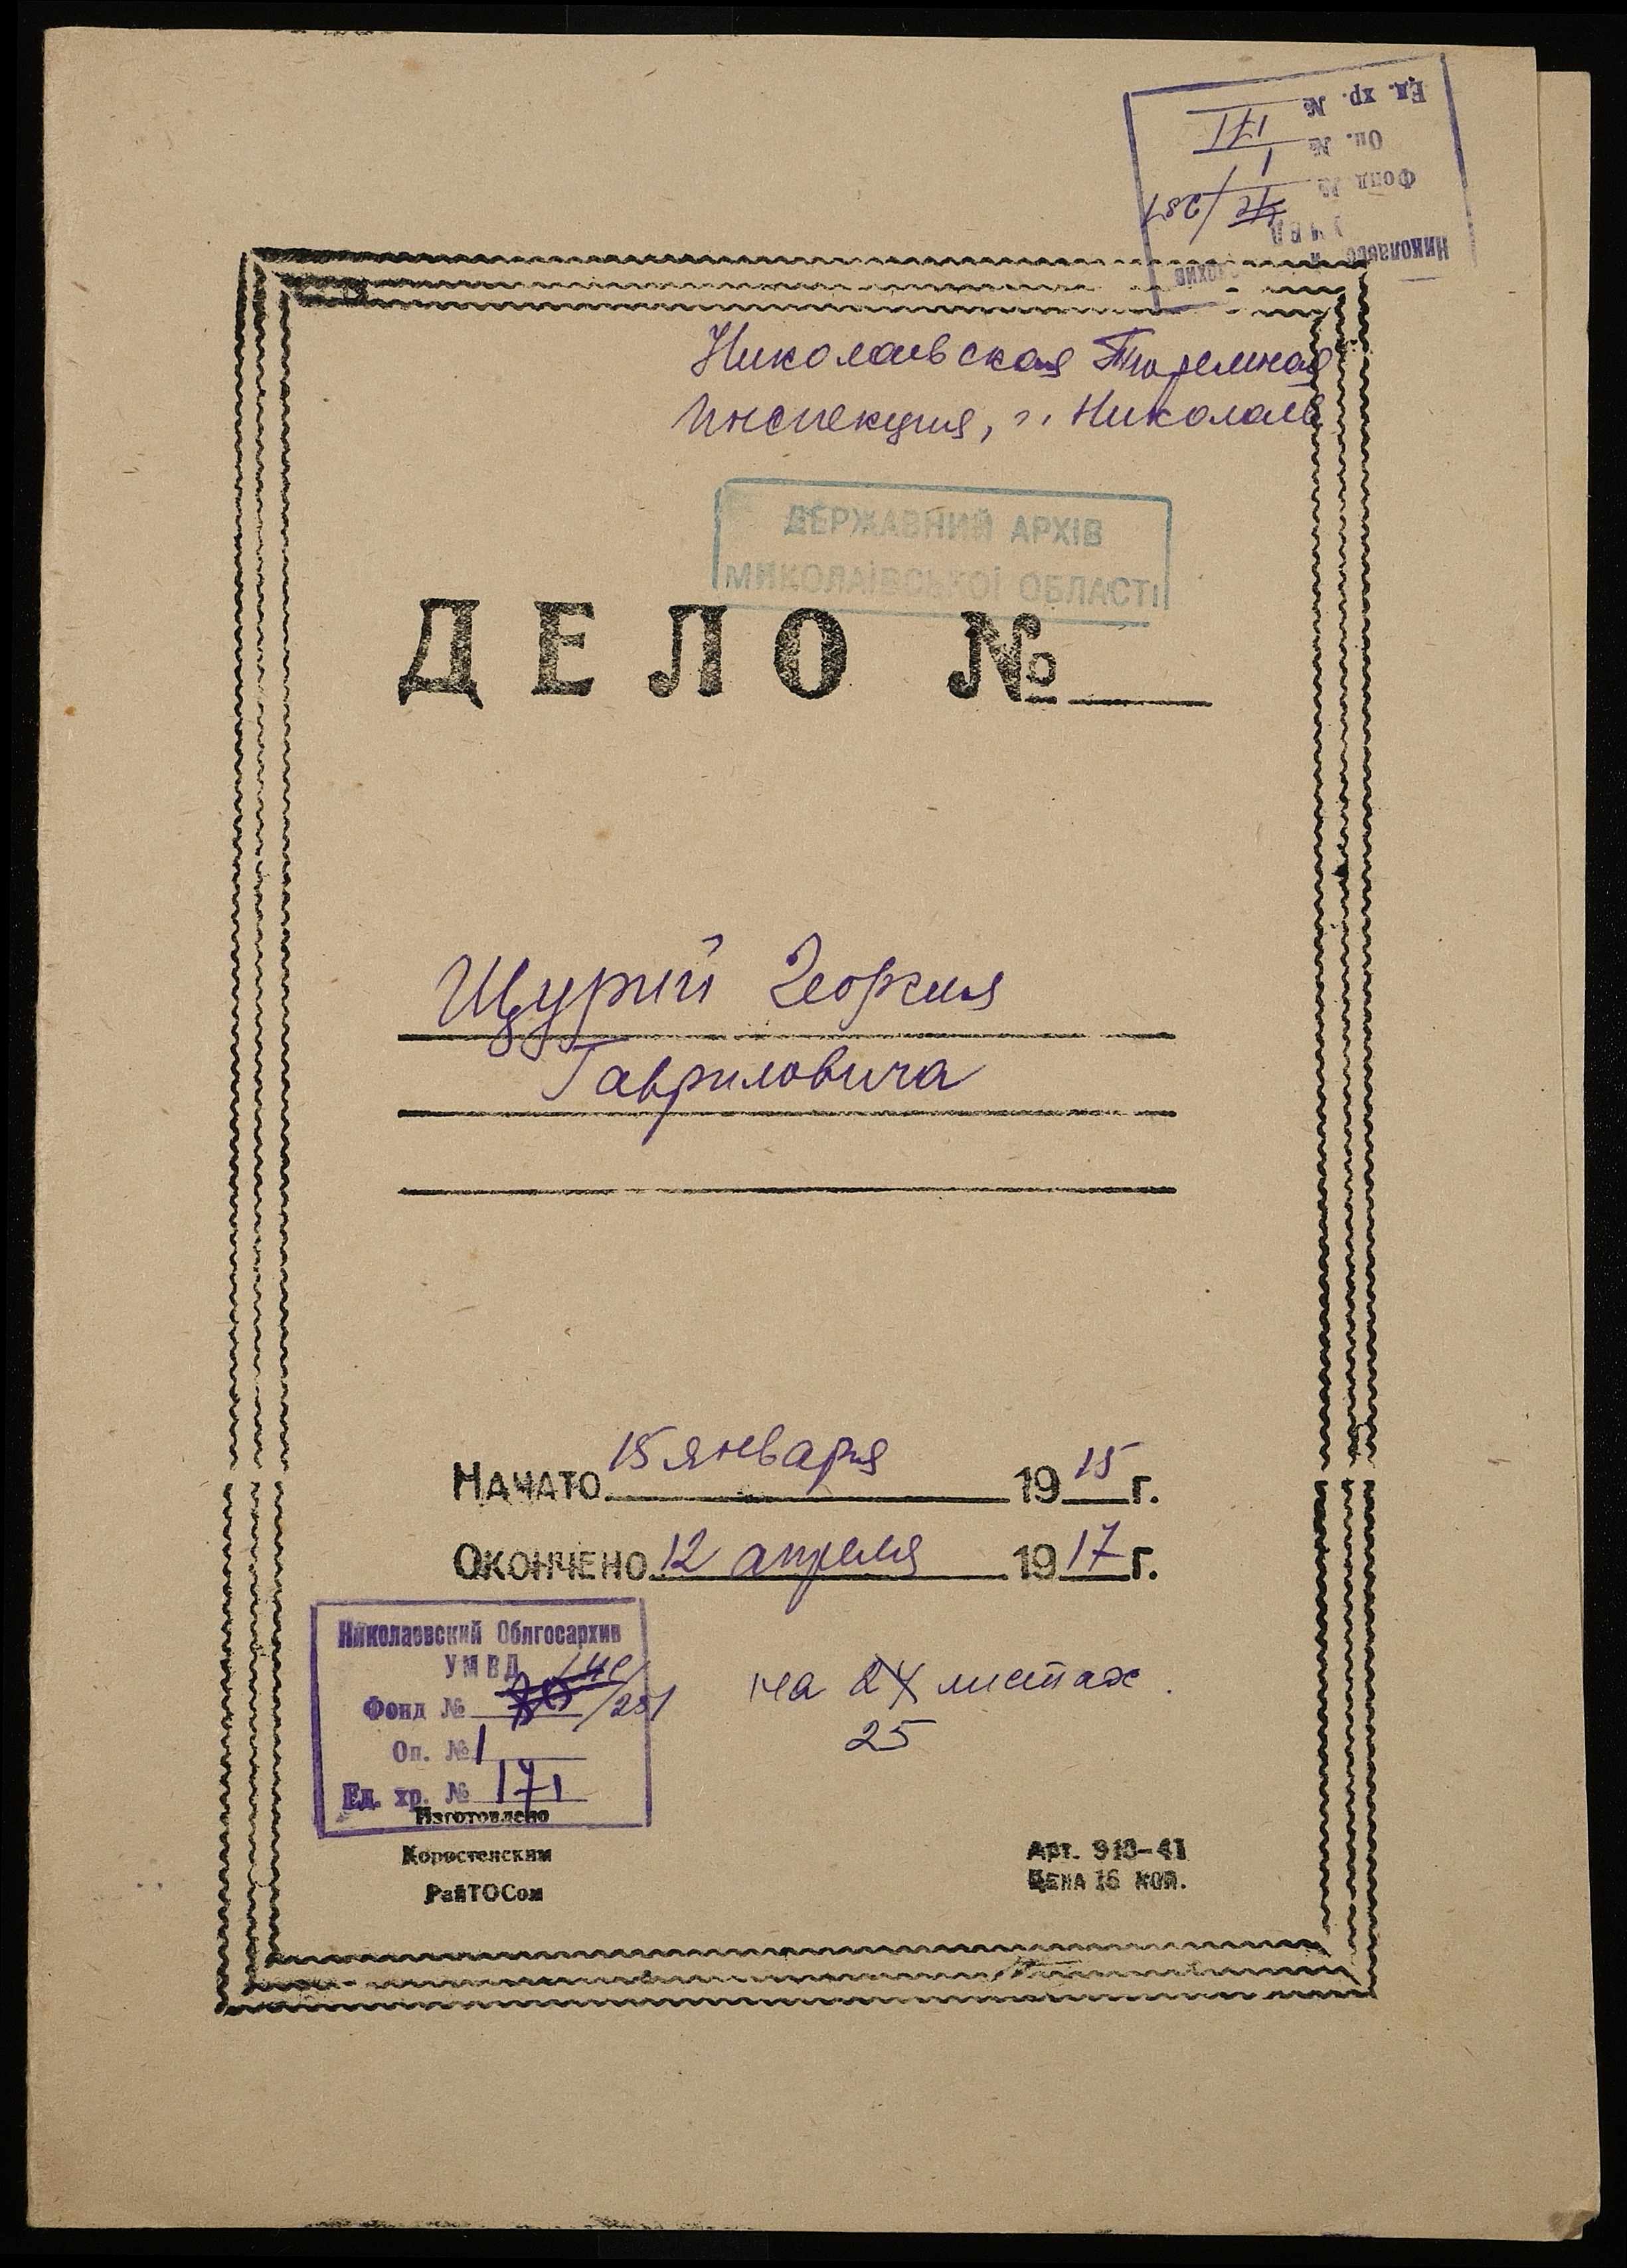 Ед. хр. № 171
Оп. № 1
Фонд № /281
УМВД
Николаевский
Николаевская Тюремная
инспекция, г. Николаев
ДЕРЖАВНИЙ АРХІВ
МИКОЛАЇВСЬКОЇ ОБЛАСТІ
ДЕЛО №
Щурий Георгия
Гавриловича
НАЧАТО 15 января 1915 г.
ОКОНЧЕНО 12 апреля 1917 г.
Николаевский Облгосархив
УМВД
Фонд № /281
на 24 листах.
25
Оп. № 1
Ед. хр. № 171
Изготовлено
Коростенским
РайТОСом
Арт. 910-41
ЦЕНА 16 КОП.